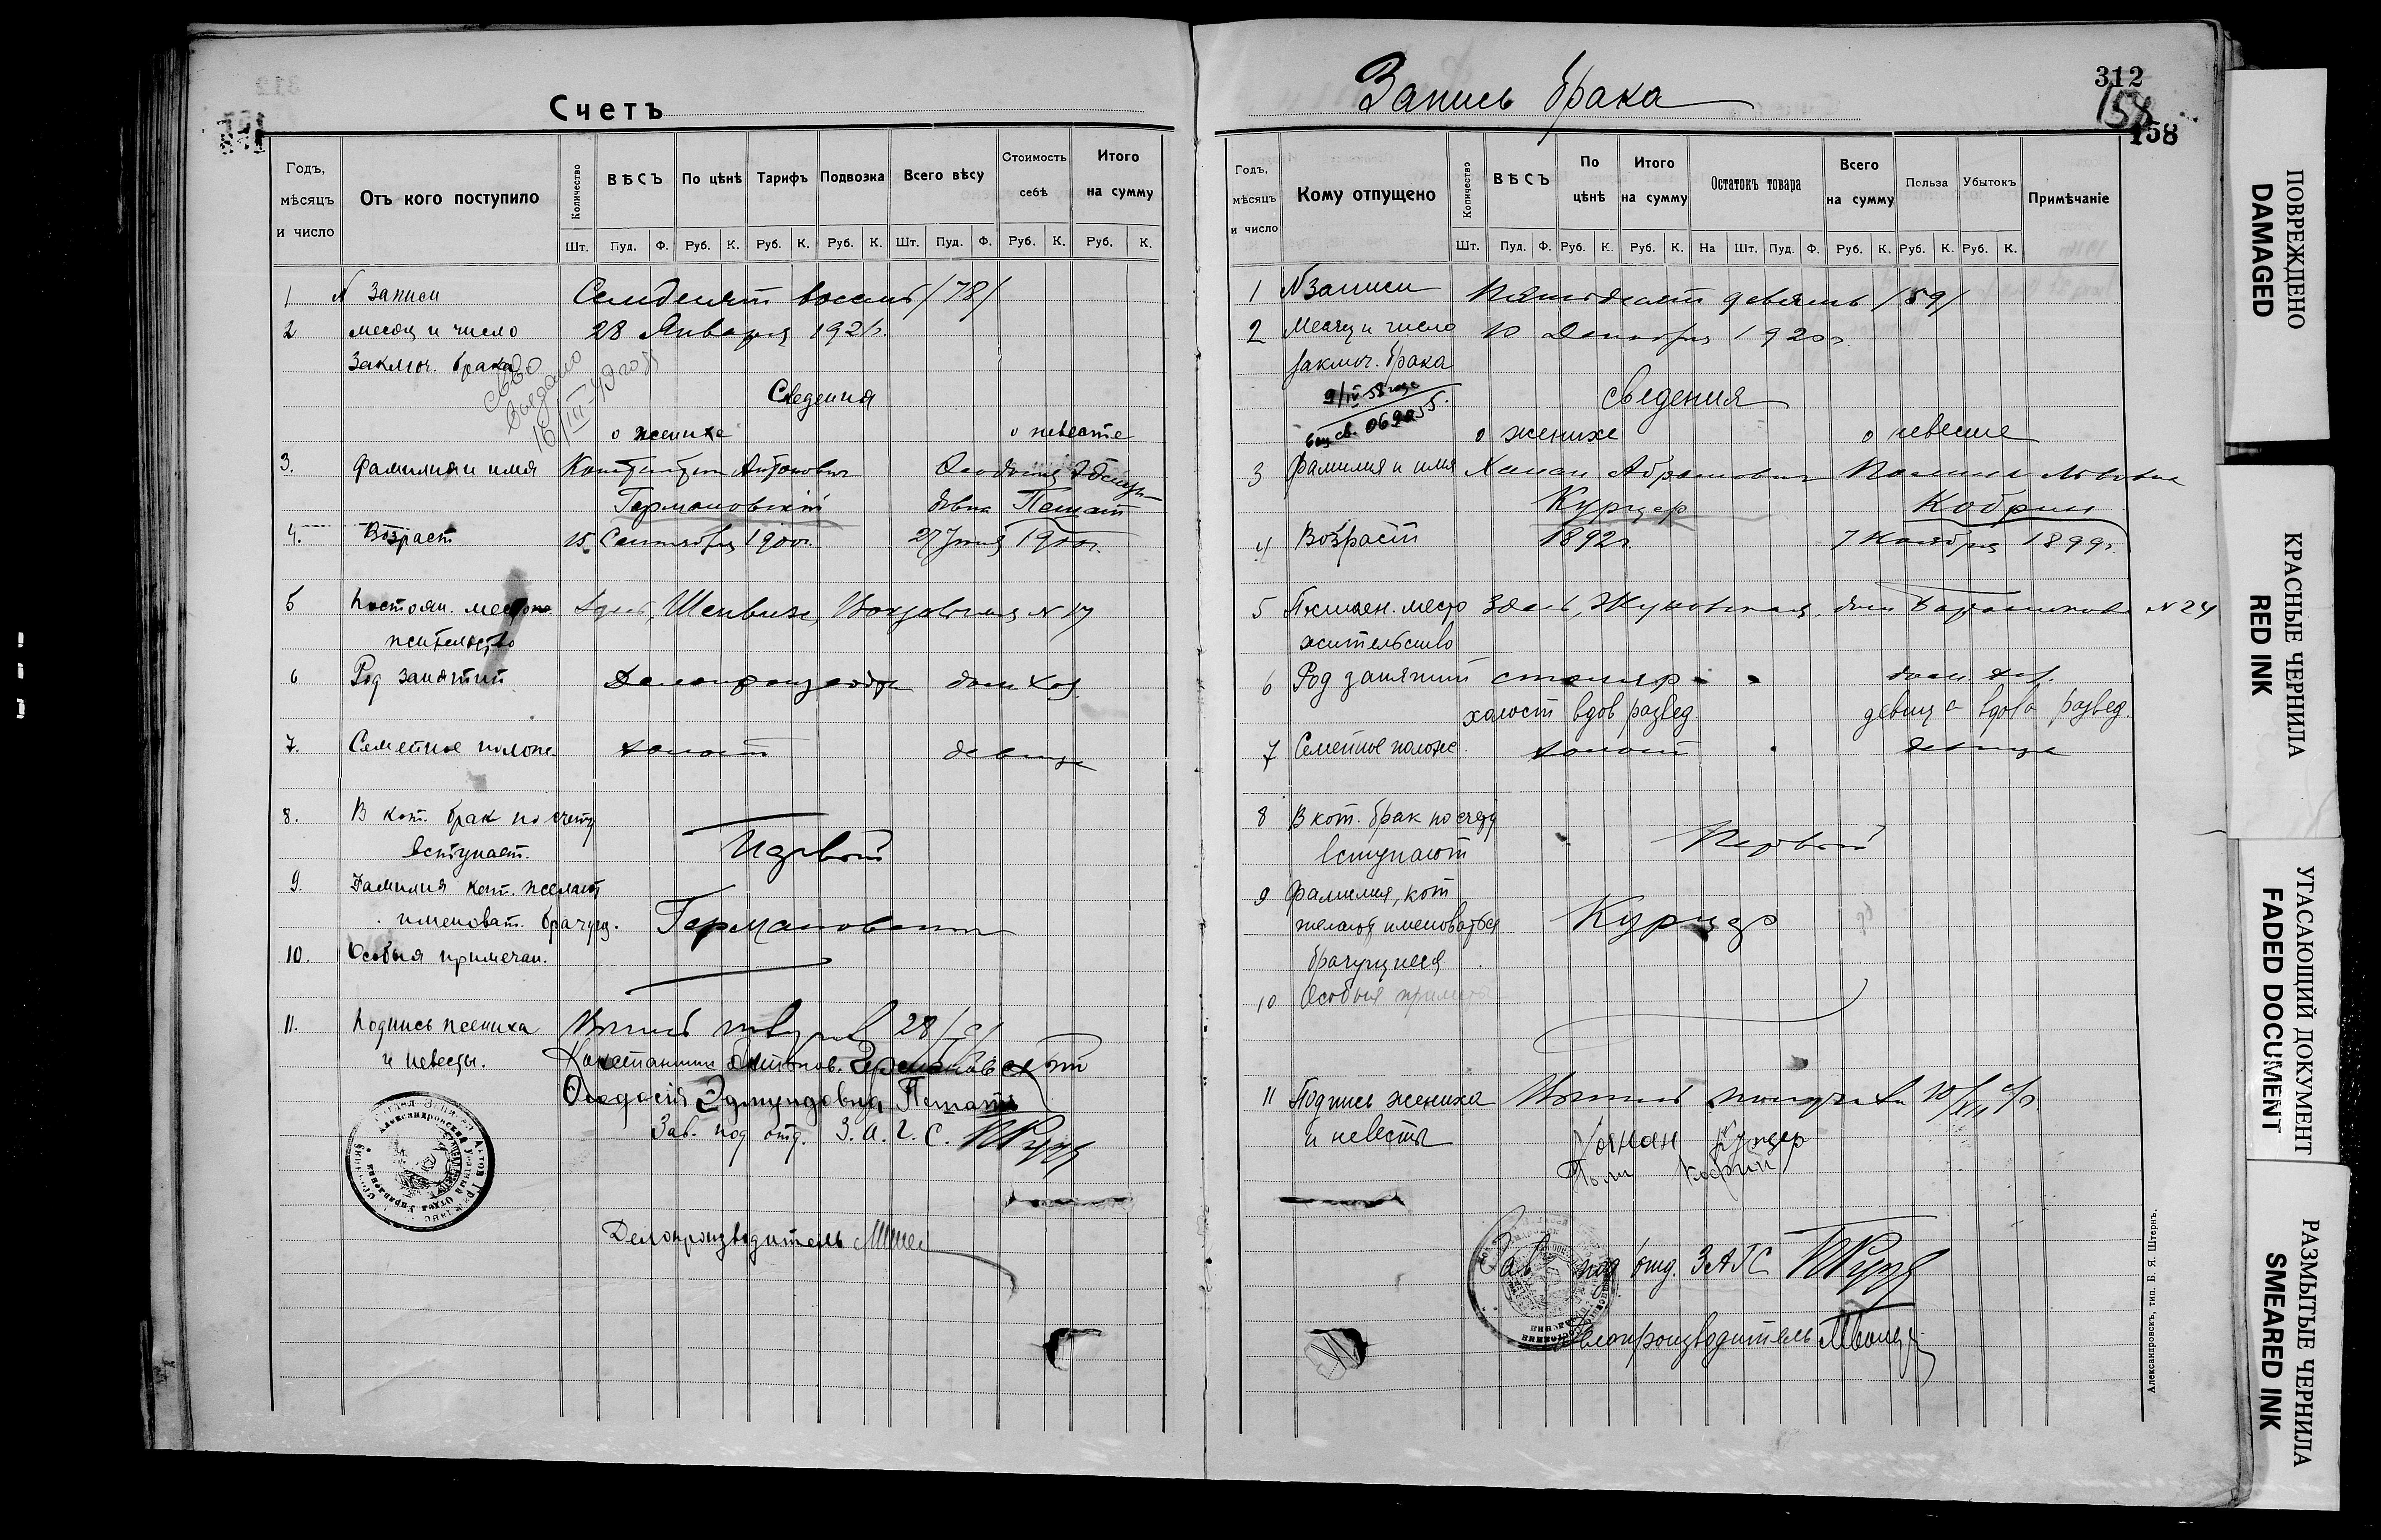 Счетъ
Годъ, мѣсяцъ и число
Отъ кого поступило
Количество
ВѢСЪ
По цѣнѣ
Тарифъ
Подвозка
Всего вѣсу
Стоимость себѣ
Итого на сумму
Шт. Пуд. Ф. Руб. К. Руб. К. Руб. К. Шт. Пуд. Ф. Руб. К. Руб. К.
1 N Записи Семдесят восемь /78/
2 месяц и число 28 Января 1921г.
Заключ. брака
Выдано
16/III-49 года
Сведения
о женихе о невесте
3. Фамилия и имя Константин Антонович
Германовский Пешат
4. Возраст 15 Сентября 1900г. 27 1900г.
5 Постоян. место здесь, Шенвизе, Вокзальная N 17
жительство
6 Род занятий Делопроизводит дом хоз.
7. Семейное полож. холост девица
8. В кот. брак по счету
вступает. Первый
9. Фамилия кот. желают
именоват. брачущ. Германовский
10. Особыя примечан.
11. Подпись жениха 28/
и невесты. Константин Антонов. Германовский
Феодосія Эдмундовна Пешат
Зав. под отд. З.А.Г.С.
Делопроизводитель
Запись брака
312
158
158
Годъ, мѣсяцъ и число
Кому отпущено
Количество
ВѢСЪ
По цѣнѣ
Итого на сумму
Остатокъ товара
Всего на сумму
Польза
Убытокъ
Примѣчаніе
Шт. Пуд. Ф. Руб. К. Руб. К. На Шт. Пуд. Ф. Руб. К. Руб. К. Руб. К.
1 N записи Пятьдесят девять /59/
2 Месяц и число 10 Декабря 1920г.
заключ. брака
9/IV 58 года
сведения
о женихе о невесте
3 Фамилия и имя Ханан Абрамович Львовна
Курцер Кобрин
4 Возраст 1892г. 7 Ноября 1899г.
5 Постоян. место Здесь, Жуковская, дом N 24
жительство
6 Род занятий столяр дом. хоз.
холост вдов развед. девица вдова развед.
7 Семейное полож. холост девица
8 В кот. брак по счету
вступают Первый
9 Фамилия, кот
желают именоваться Курцер
брачущиеся
10 Особыя примеч
11 Подпись жениха 10/XII
и невесты Ханан Курцер
Кобрин
Зав. под отд. ЗАГС
Делопроизводитель
Александровскъ, тип. Б. Я. Штернъ.
ПОВРЕЖДЕНО
DAMAGED
КРАСНЫЕ ЧЕРНИЛА
RED INK
УГАСАЮЩИЙ ДОКУМЕНТ
FADED DOCUMENT
РАЗМЫТЫЕ ЧЕРНИЛА
SMEARED INK